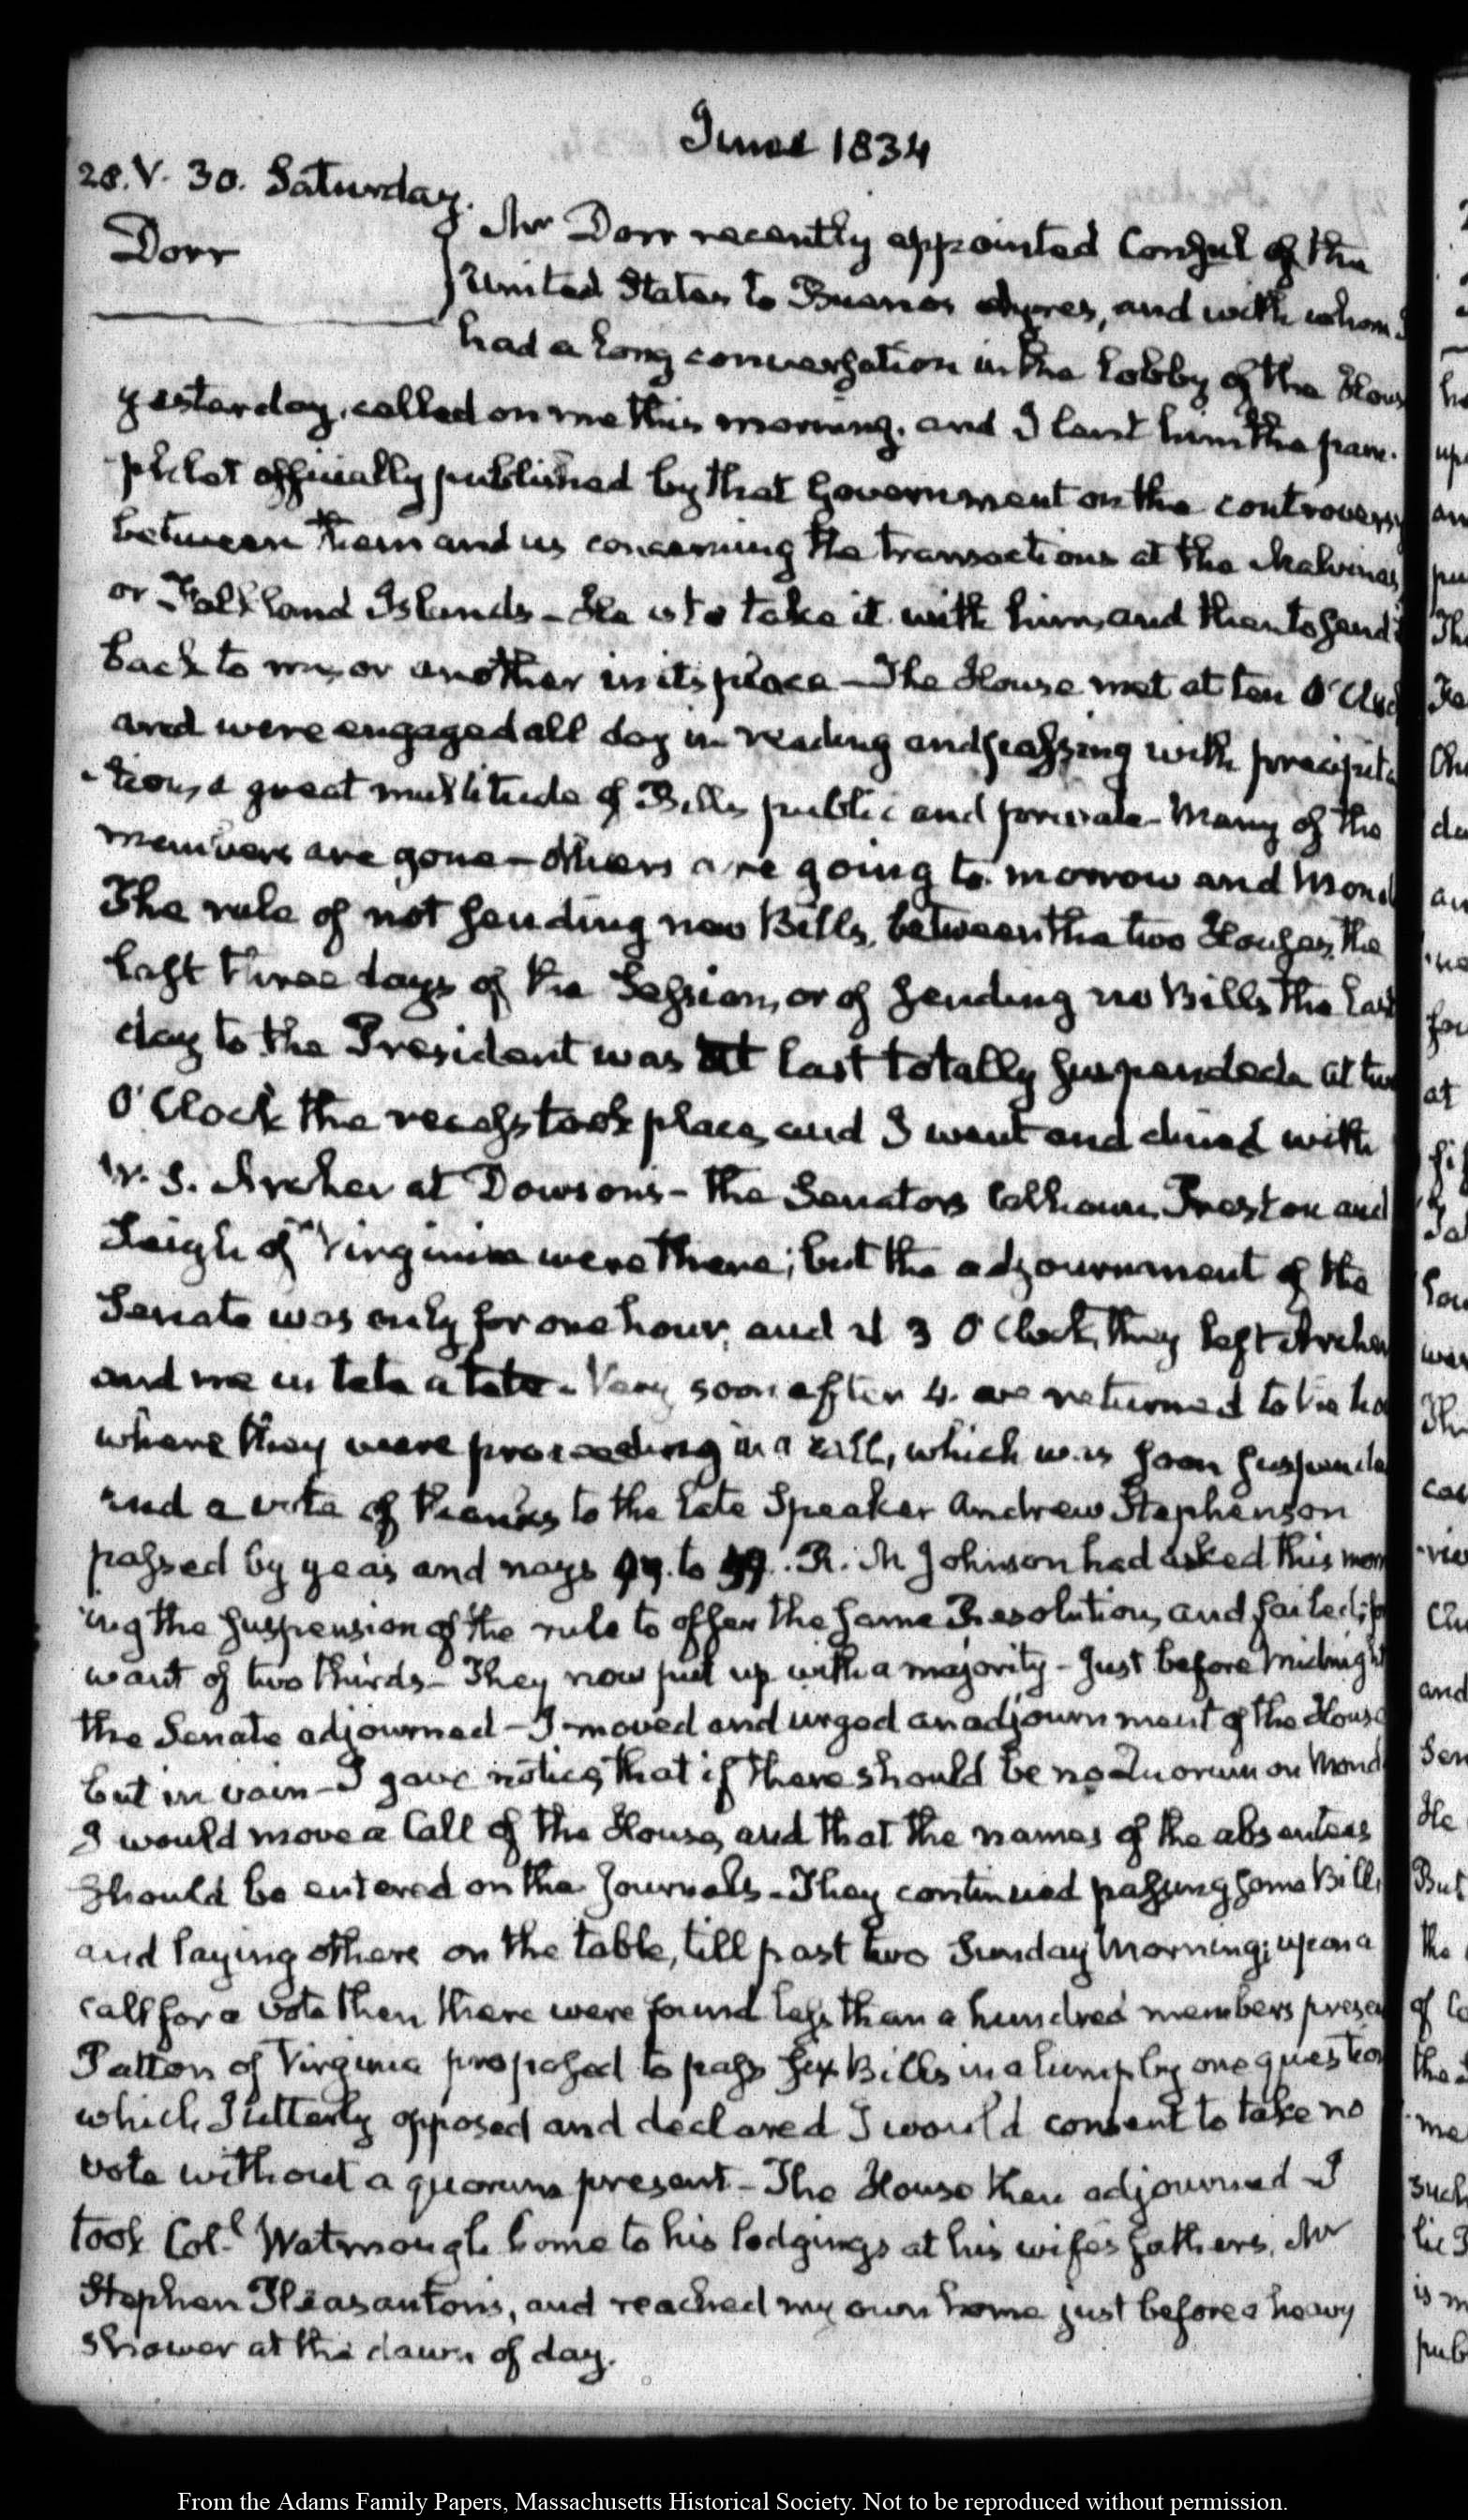 June 1834
28. V. 30. Saturday.
Dorr
Mr Dorr recently appointed Consul of the
United States to Buenos Ayres, and with whom I
had a long conversation in the lobby of the Hous
yesterday, called on me this morning. and I lent him the pam-
phlet officially published by that Government on the controversy
between them and us concerning the transactions at the Malvinas,
or Falkland Islands - He is to take it with him, and then to send it
back to me, or another in its place - The House met at ten O'Cloc
and were engaged all day in reading and passing with precipita
-tion, a great multitude of Bills public and private - Many of the
members are gone - others are going to-morrow and Mond
The rule of not sending new Bills, between the two Houses, the
last three days of the Session, or of sending no Bills the last
day to the President was at last totally suspended. at two
O'Clock the recess took place, and I went and dined with
W. S. Archer at Dowson's - the Senators Calhoun, Preston and
Leigh of Virginia were there; but the adjournment of the
Senate was only for one hour, and at 3 O'Clock, they left Archer
and me in tete a tete. Very soon after 4. we returned to the ho
where they were proceeding in a call, which was soon suspende
and a vote of thanks to the late Speaker Andrew Stephenson
passed by yeas and nays to . R. M Johnson had asked this morn
ing the suspension of the rule to offer the same Resolution, and failed, fo
want of two thirds - They now put up with a majority - Just before Midnight
the Senate adjourned - I moved and urged an adjournment of the House
but in vain - I gave notice, that if there should be no Quorum on Mond
I would move a Call of the House, and that the names of the absentees
should be entered on the Journals - They continued passing some Bills,
and laying others on the table, till past two Sunday Morning; upon a
call for a vote then there were found less than a hundred members presen
Patton of Virginia proposed to pass six Bills in a lump by one question
which I utterly opposed and declared I would consent to take no
vote without a quorum present - The House then adjourned - I
took Coll. Watmough home to his lodgings at his wife's father's, Mr
Stephen Pleasanton's, and reached my own home just before a heavy
shower at the dawn of day.
From the Adams Family Papers, Massachusetts Historical Society. Not to be reproduced without permission.